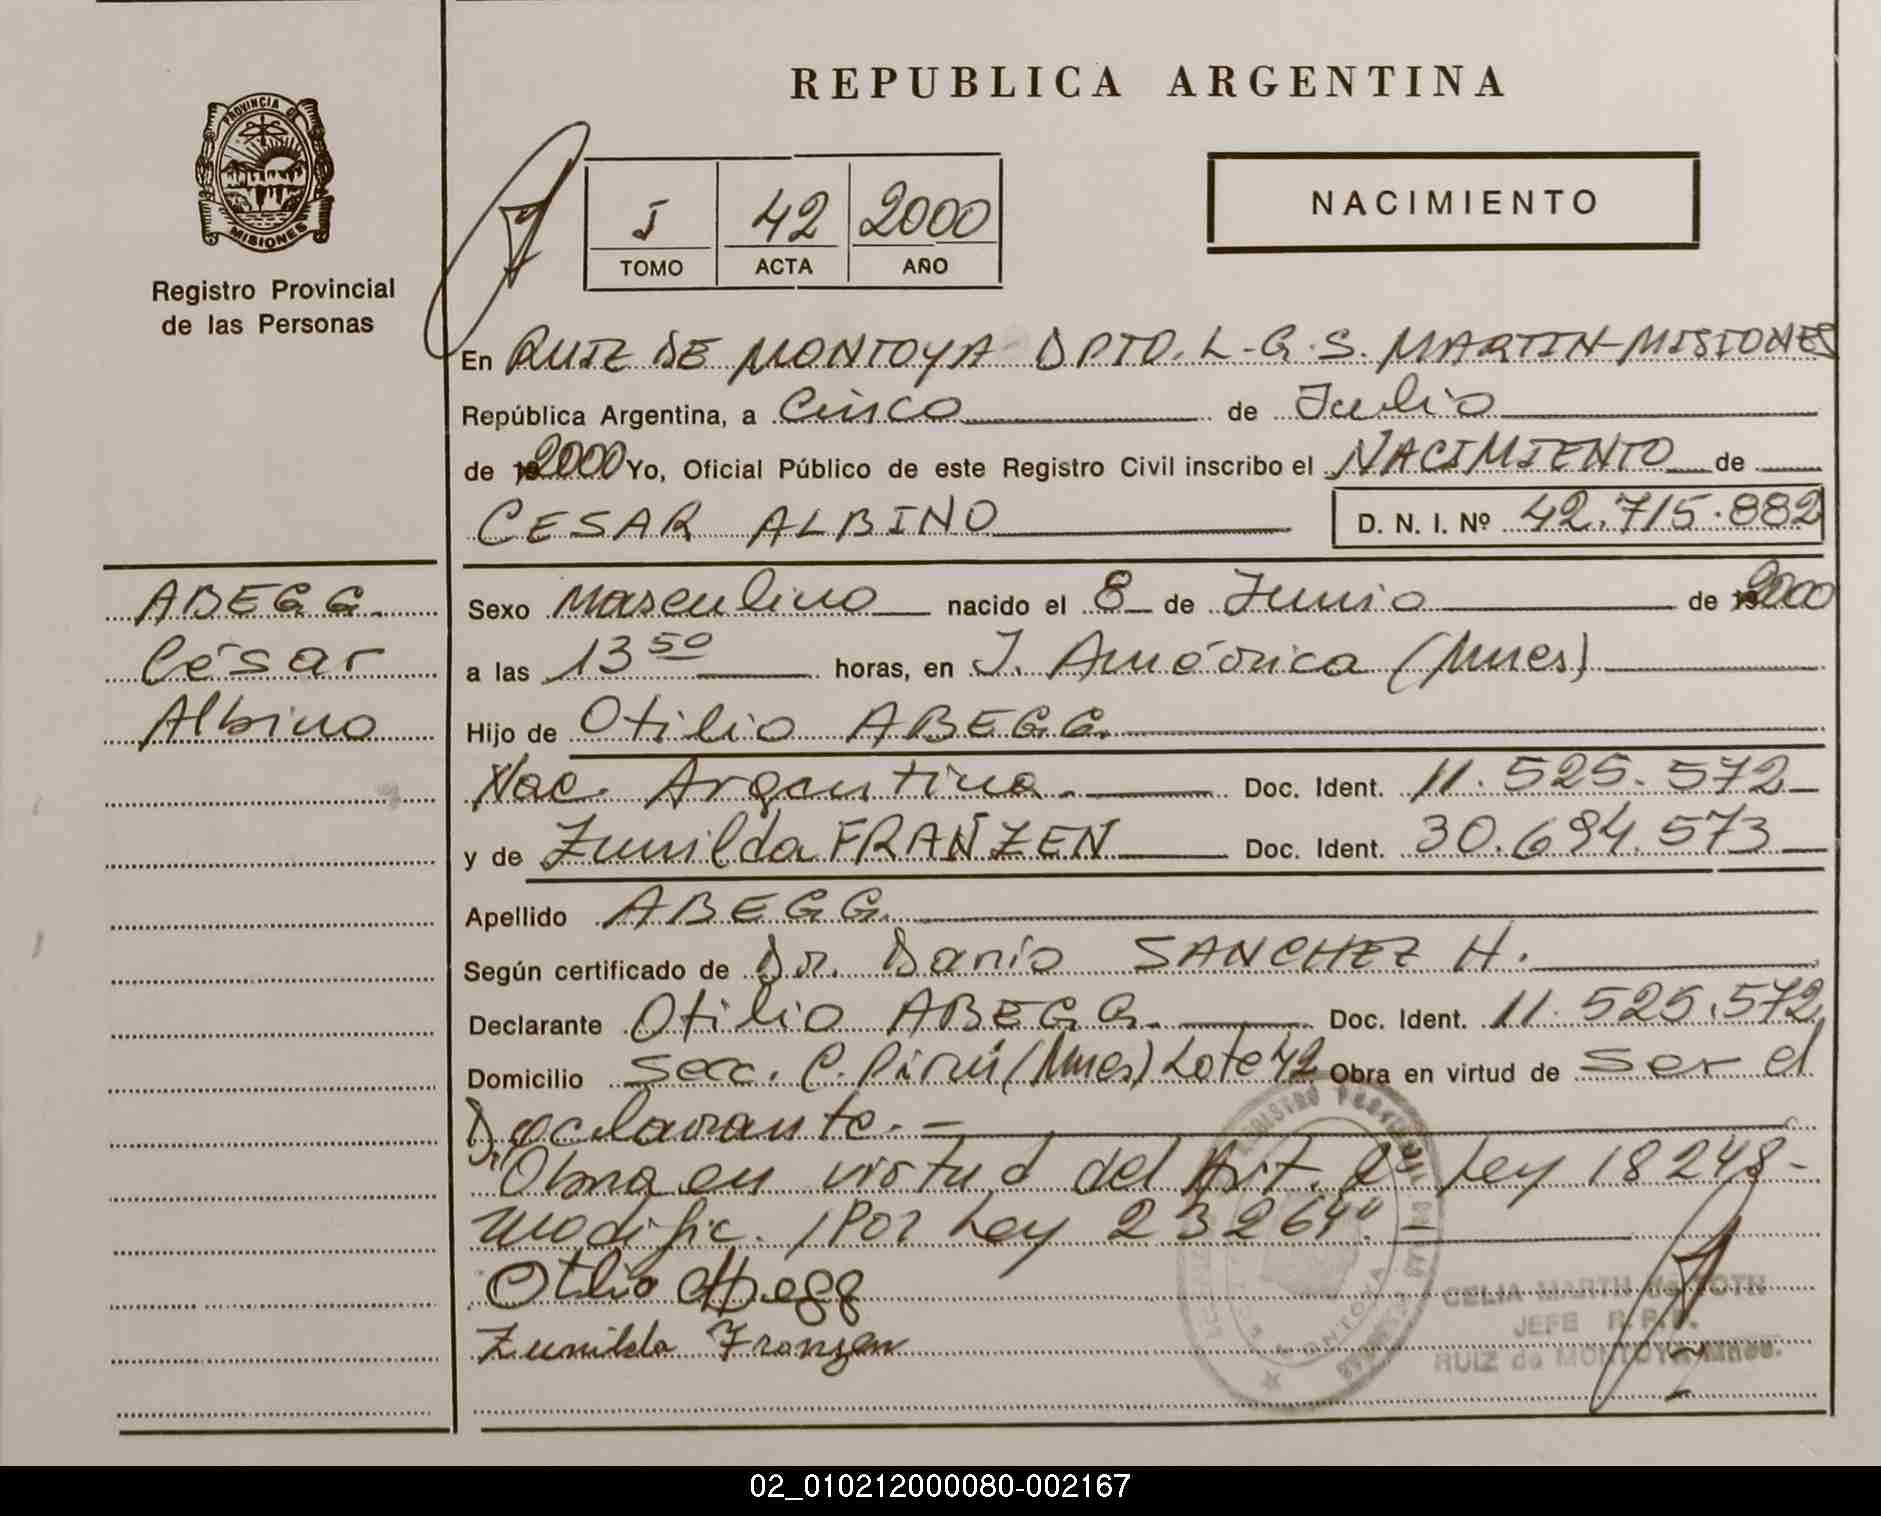 REPUBLICA ARGENTINA
PROVINCIA DE
MISIONES
Registro Provincial
de las Personas
I 42 2000
TOMO ACTA AÑO
NACIMIENTO
En RUIZ DE MONTOYA DPTO. L.G.S. MARTIN-MISIONES
República Argentina, a Cinco de Julio
de 2000 Yo, Oficial Público de este Registro Civil inscribo el NACIMIENTO de
CESAR ALBINO D. N. I. Nº 42.715.882
ABEGG.
César
Albino
Sexo Masculino nacido el 8 de Junio de 2000
a las 13 50 horas, en J. América (Mnes)
Hijo de Otilio ABEGG.
Nac. Argentina. Doc. Ident. 11.525.572
y de Zunilda FRANZEN Doc. Ident. 30.694.573
Apellido ABEGG.
Según certificado de Dr. Dario SANCHEZ H.
Declarante Otilio ABEGG. Doc. Ident. 11.525.572
Domicilio Secc. C. Pirú (Mnes) Lote 42 Obra en virtud de ser el
Declarante.-
"Obra en virtud del Art. 2º Ley 18248-
modific. Por Ley 23264".-
Otilio Abegg
Zunilda Franzen
CELIA MARTH de TOTH
JEFE R.P.P.
RUIZ de MONTOYA Mnes.
02_010212000080-002167